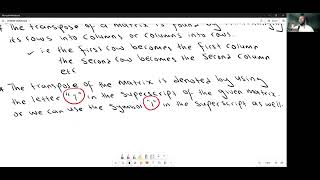 The transpose of a matrix is found by
its rows into columns or columns into rows.
i.e the first row becomes the first column
the second row becomes the second column
etc
The transpose of the matrix is denoted by using
the letter in the superscript of the given matrix.
or we can use the symbol in the superscript as well.